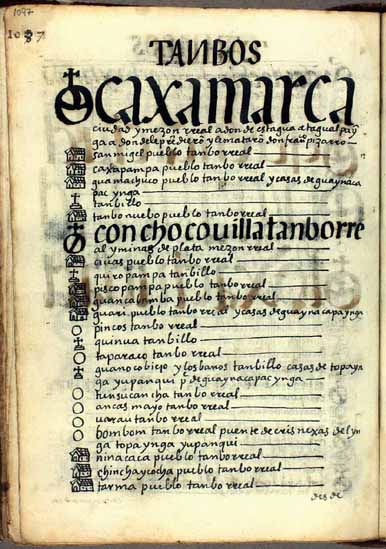 1097
1087
TANBOS
caxamarca
ciudad y mezon rreal adonde estaua atagualpa yn
ga adonde le prendiero y le mataro don franco pizarro
san migel pueblo tanbo rreal
caxapanpa pueblo tanbo rreal
guamachuco pueblo tanbo rreal y casas de guaynaca
pac ynga
tanbillo
tanbo nuebo pueblo tanbo rreal
conchoco uilla tanbo rre
al y minas de plata mezon rreal
ciuas pueblo tanbo rreal
quiropanpa tanbillo
piscopanpa pueblo tanbo rreal
guancabanba pueblo tanbo rreal
guari pueblo tanbo rreal y casas de guaynacapa ynga
pincos tanbo rreal
quinua tanbillo
taparaco tanbo rreal
guanoco biejo y los banos tanbillo casas de topa yn
ga yupanqui p de guaynacapac ynga
tunsucancha tanbo rreal
ancas mayo tanbo rreal
uarau tanbo rreal
bombom tanbo rreal puente de crisnexas del yn
ga topa ynga yupanqui
ninacaca pueblo tanbo rreal
chinchaycocha pueblo tanbo rreal
tarma pueblo tanbo rreal
desde